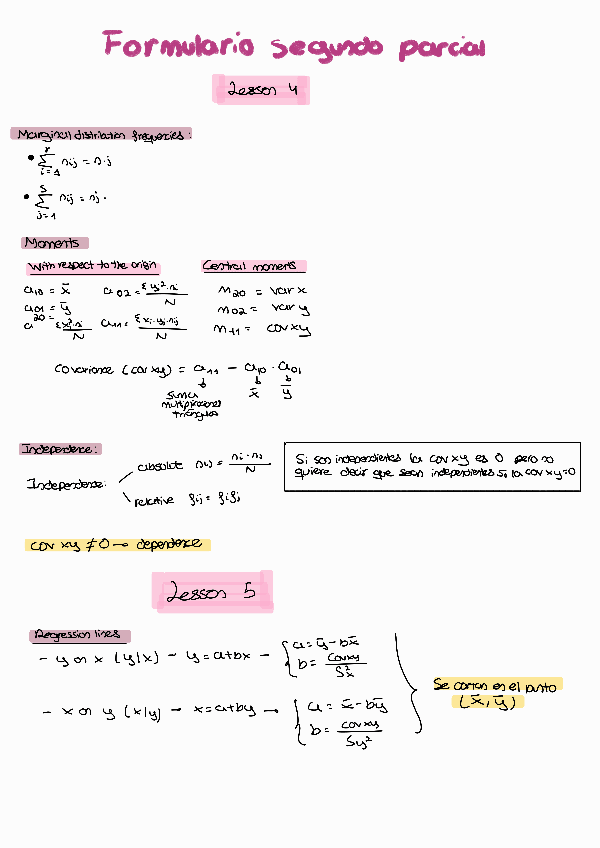 Formulario segundo parcial
Lesson 4
Marginal distribution frequencies:
• Σ_{i=1}^{r} nij = n·j
• Σ_{j=1}^{s} nij = nj·
Moments
With respect to the origin
Central moments
a10 = x̄
a02 = Σyj²·nj / N
m20 = var x
a01 = ȳ
m02 = var y
a20 = Σxi²·ni / N
a11 = Σxi·yj·nij / N
m11 = cov xy
Covariance (cov xy) = a11 − a10 · a01
suma multiplicaciones triángulos
x̄ ȳ
Independence:
Independence:
absolute nij = ni·nj / N
relative fij = fi fj
Si son independientes la cov xy es 0 pero no
quiere decir que sean independientes si la cov xy=0
cov xy ≠ 0 → dependence
Lesson 5
Regression lines
- y on x (y/x) - y = a+bx -
a = ȳ - bx̄
b = covxy / Sx²
- x on y (x/y) - x = a+by →
a = x̄ - bȳ
b = covxy / Sy²
Se cortan en el punto
(x̄, ȳ)